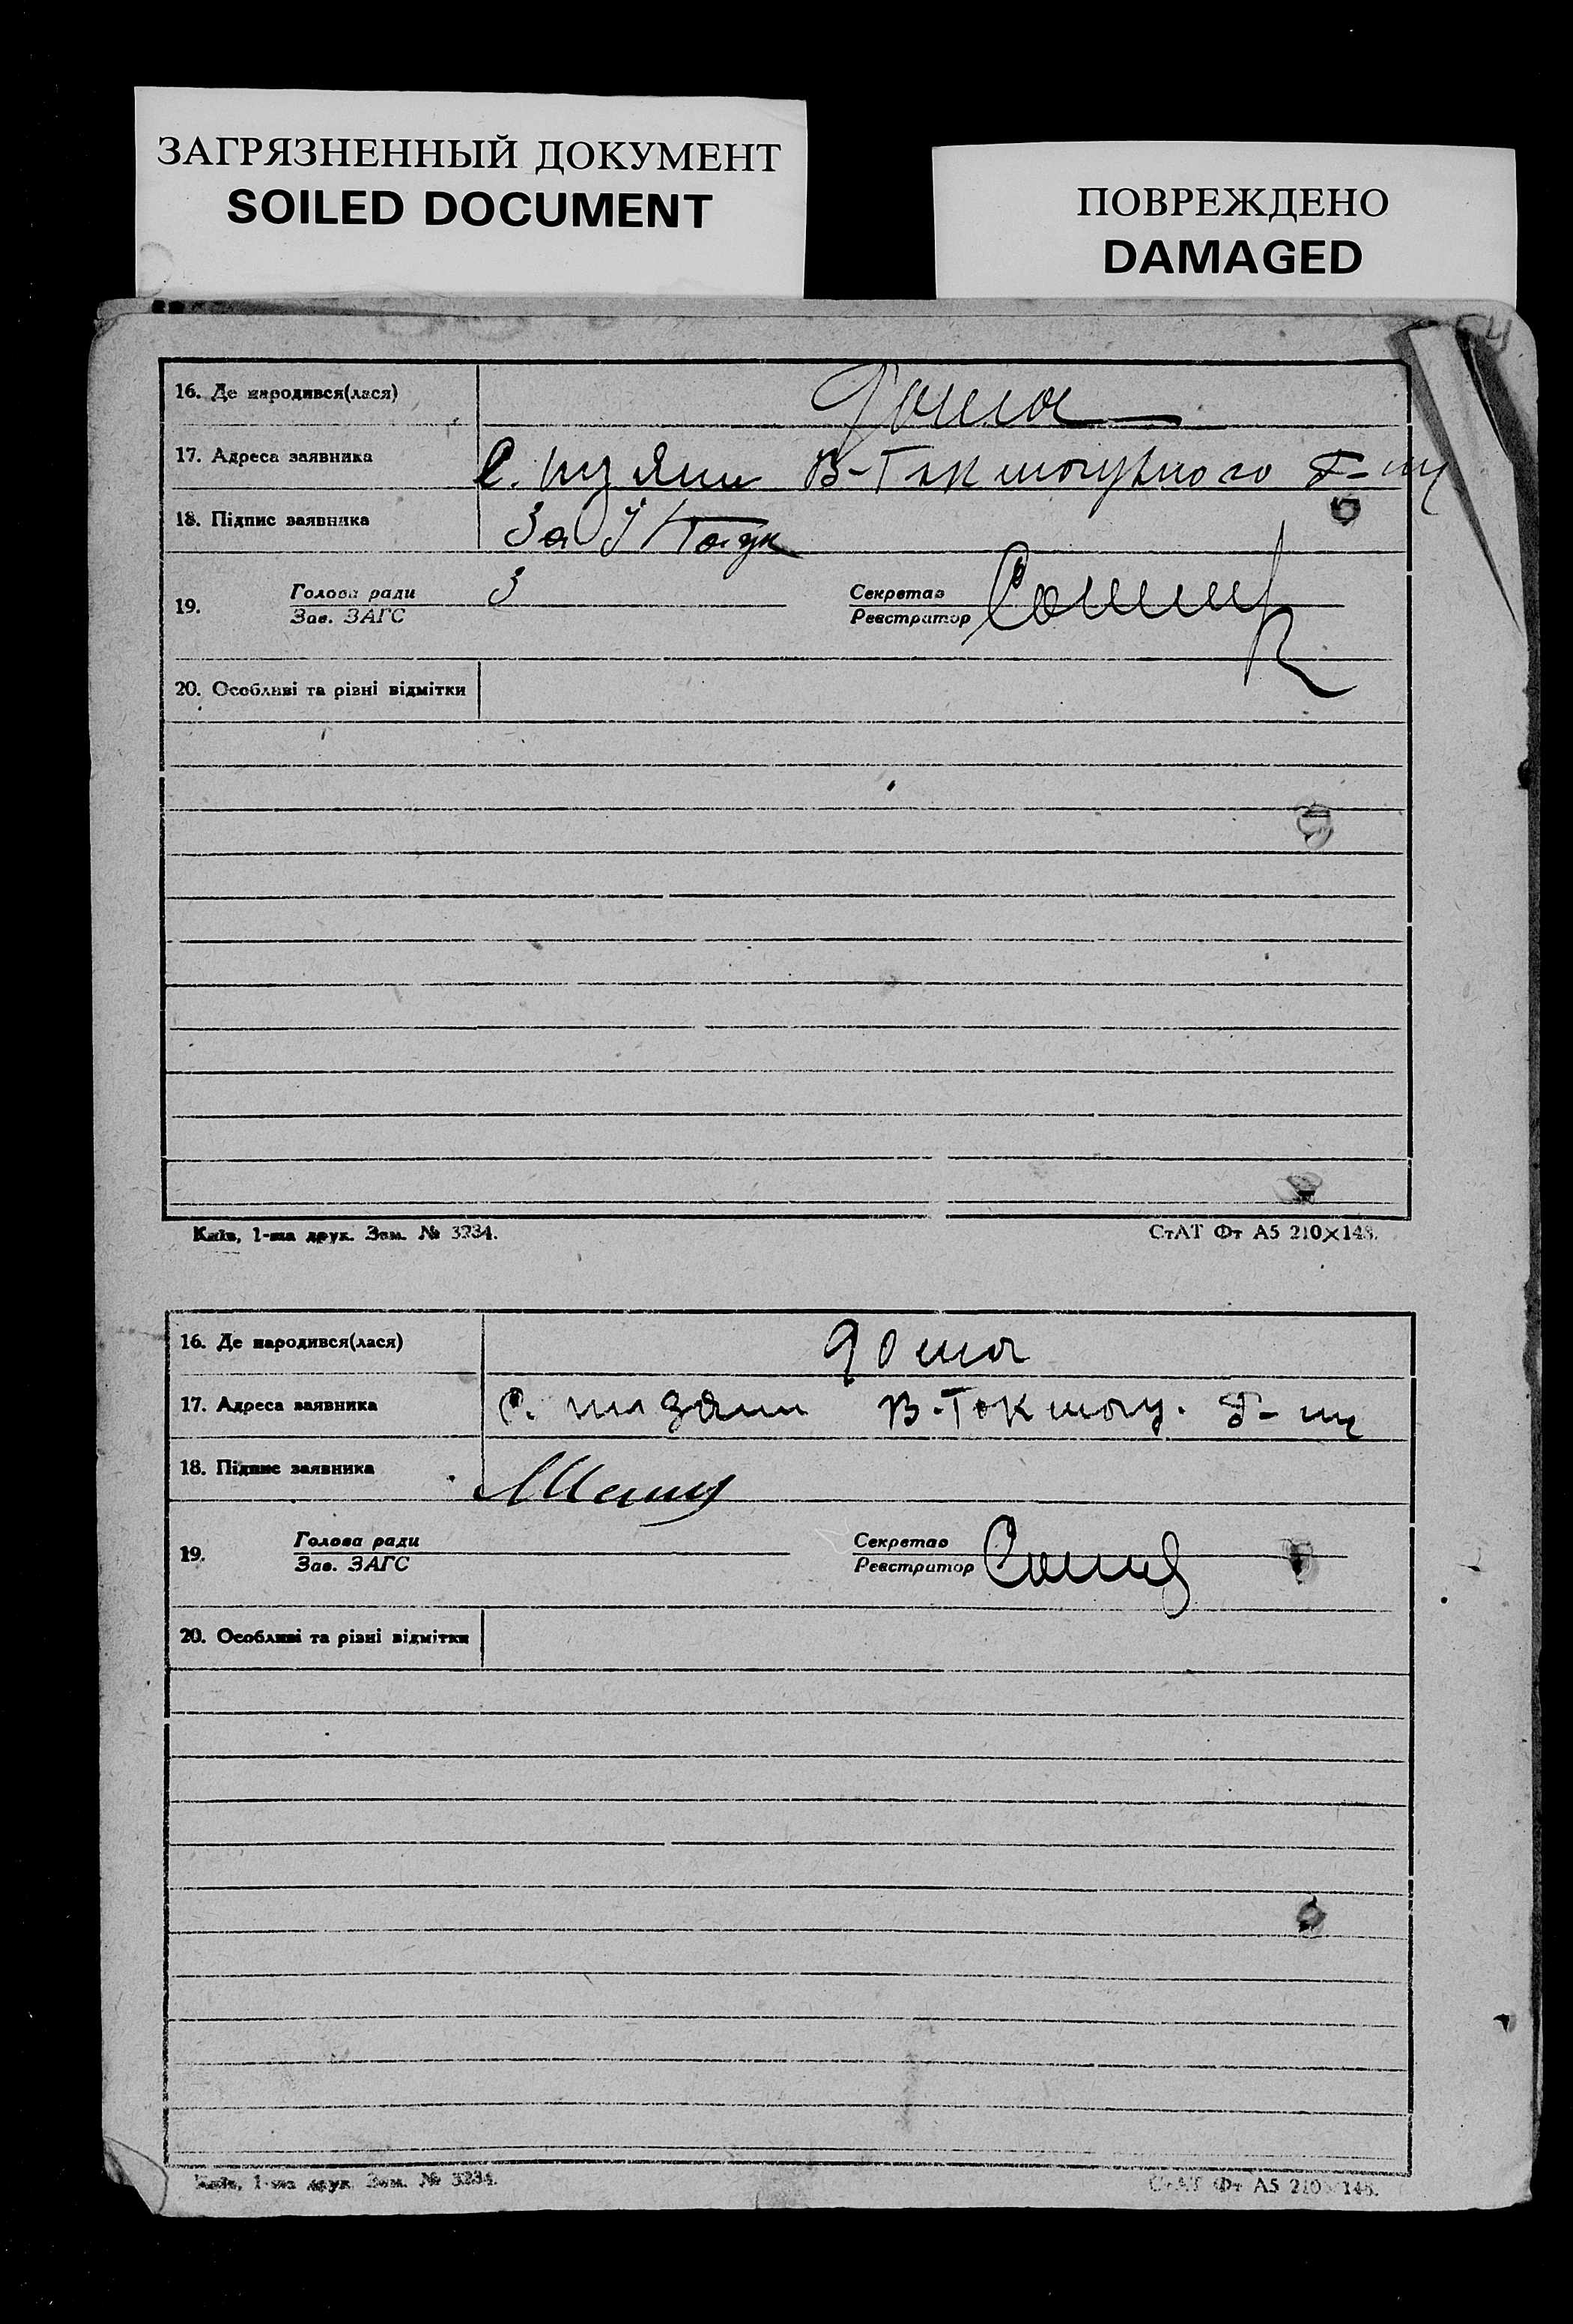 ЗАГРЯЗНЕННЫЙ ДОКУМЕНТ
SOILED DOCUMENT
ПОВРЕЖДЕНО
DAMAGED
16. Де народився(лася) дома
17. Адреса заявника с. В-Токмацького р-ну
18. Підпис заявника За
19. Голова ради Секретар
Зав. ЗАГС Реєстратор
20. Особливі та різні відмітки
Київ, 1-ша друк. Зам. № 3234.
СтАТ Фт А5 210×148.
16. Де народився(лася) дома
17. Адреса заявника с. В-Токмац. р-ну
18. Підпис заявника
19. Голова ради Секретар
Зав. ЗАГС Реєстратор
20. Особливі та різні відмітки
Київ, 1-ша друк. Зам. № 3234.
СтАТ Фт А5 210×148.